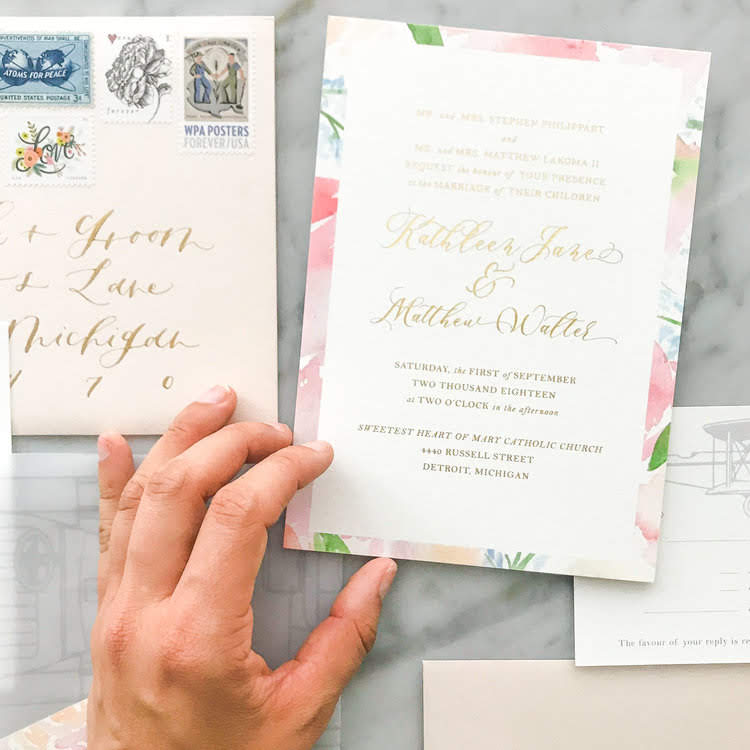 ATOMS FOR PEACE
UNITED STATES POSTAGE 3¢
forever
WPA POSTERS
FOREVER/USA
Love
+ Groom
Lane
Michigan
7 0
MR. and MRS. STEPHEN PHILIPPART
and
MR. and MRS. MATTHEW LAKOMA II
REQUEST the honour of YOUR PRESENCE
at the MARRIAGE of THEIR CHILDREN
Kathleen Jane
&
Matthew Walter
SATURDAY, the FIRST of SEPTEMBER
TWO THOUSAND EIGHTEEN
at TWO O'CLOCK in the afternoon
SWEETEST HEART OF MARY CATHOLIC CHURCH
4440 RUSSELL STREET
DETROIT, MICHIGAN
The favour of your reply is re